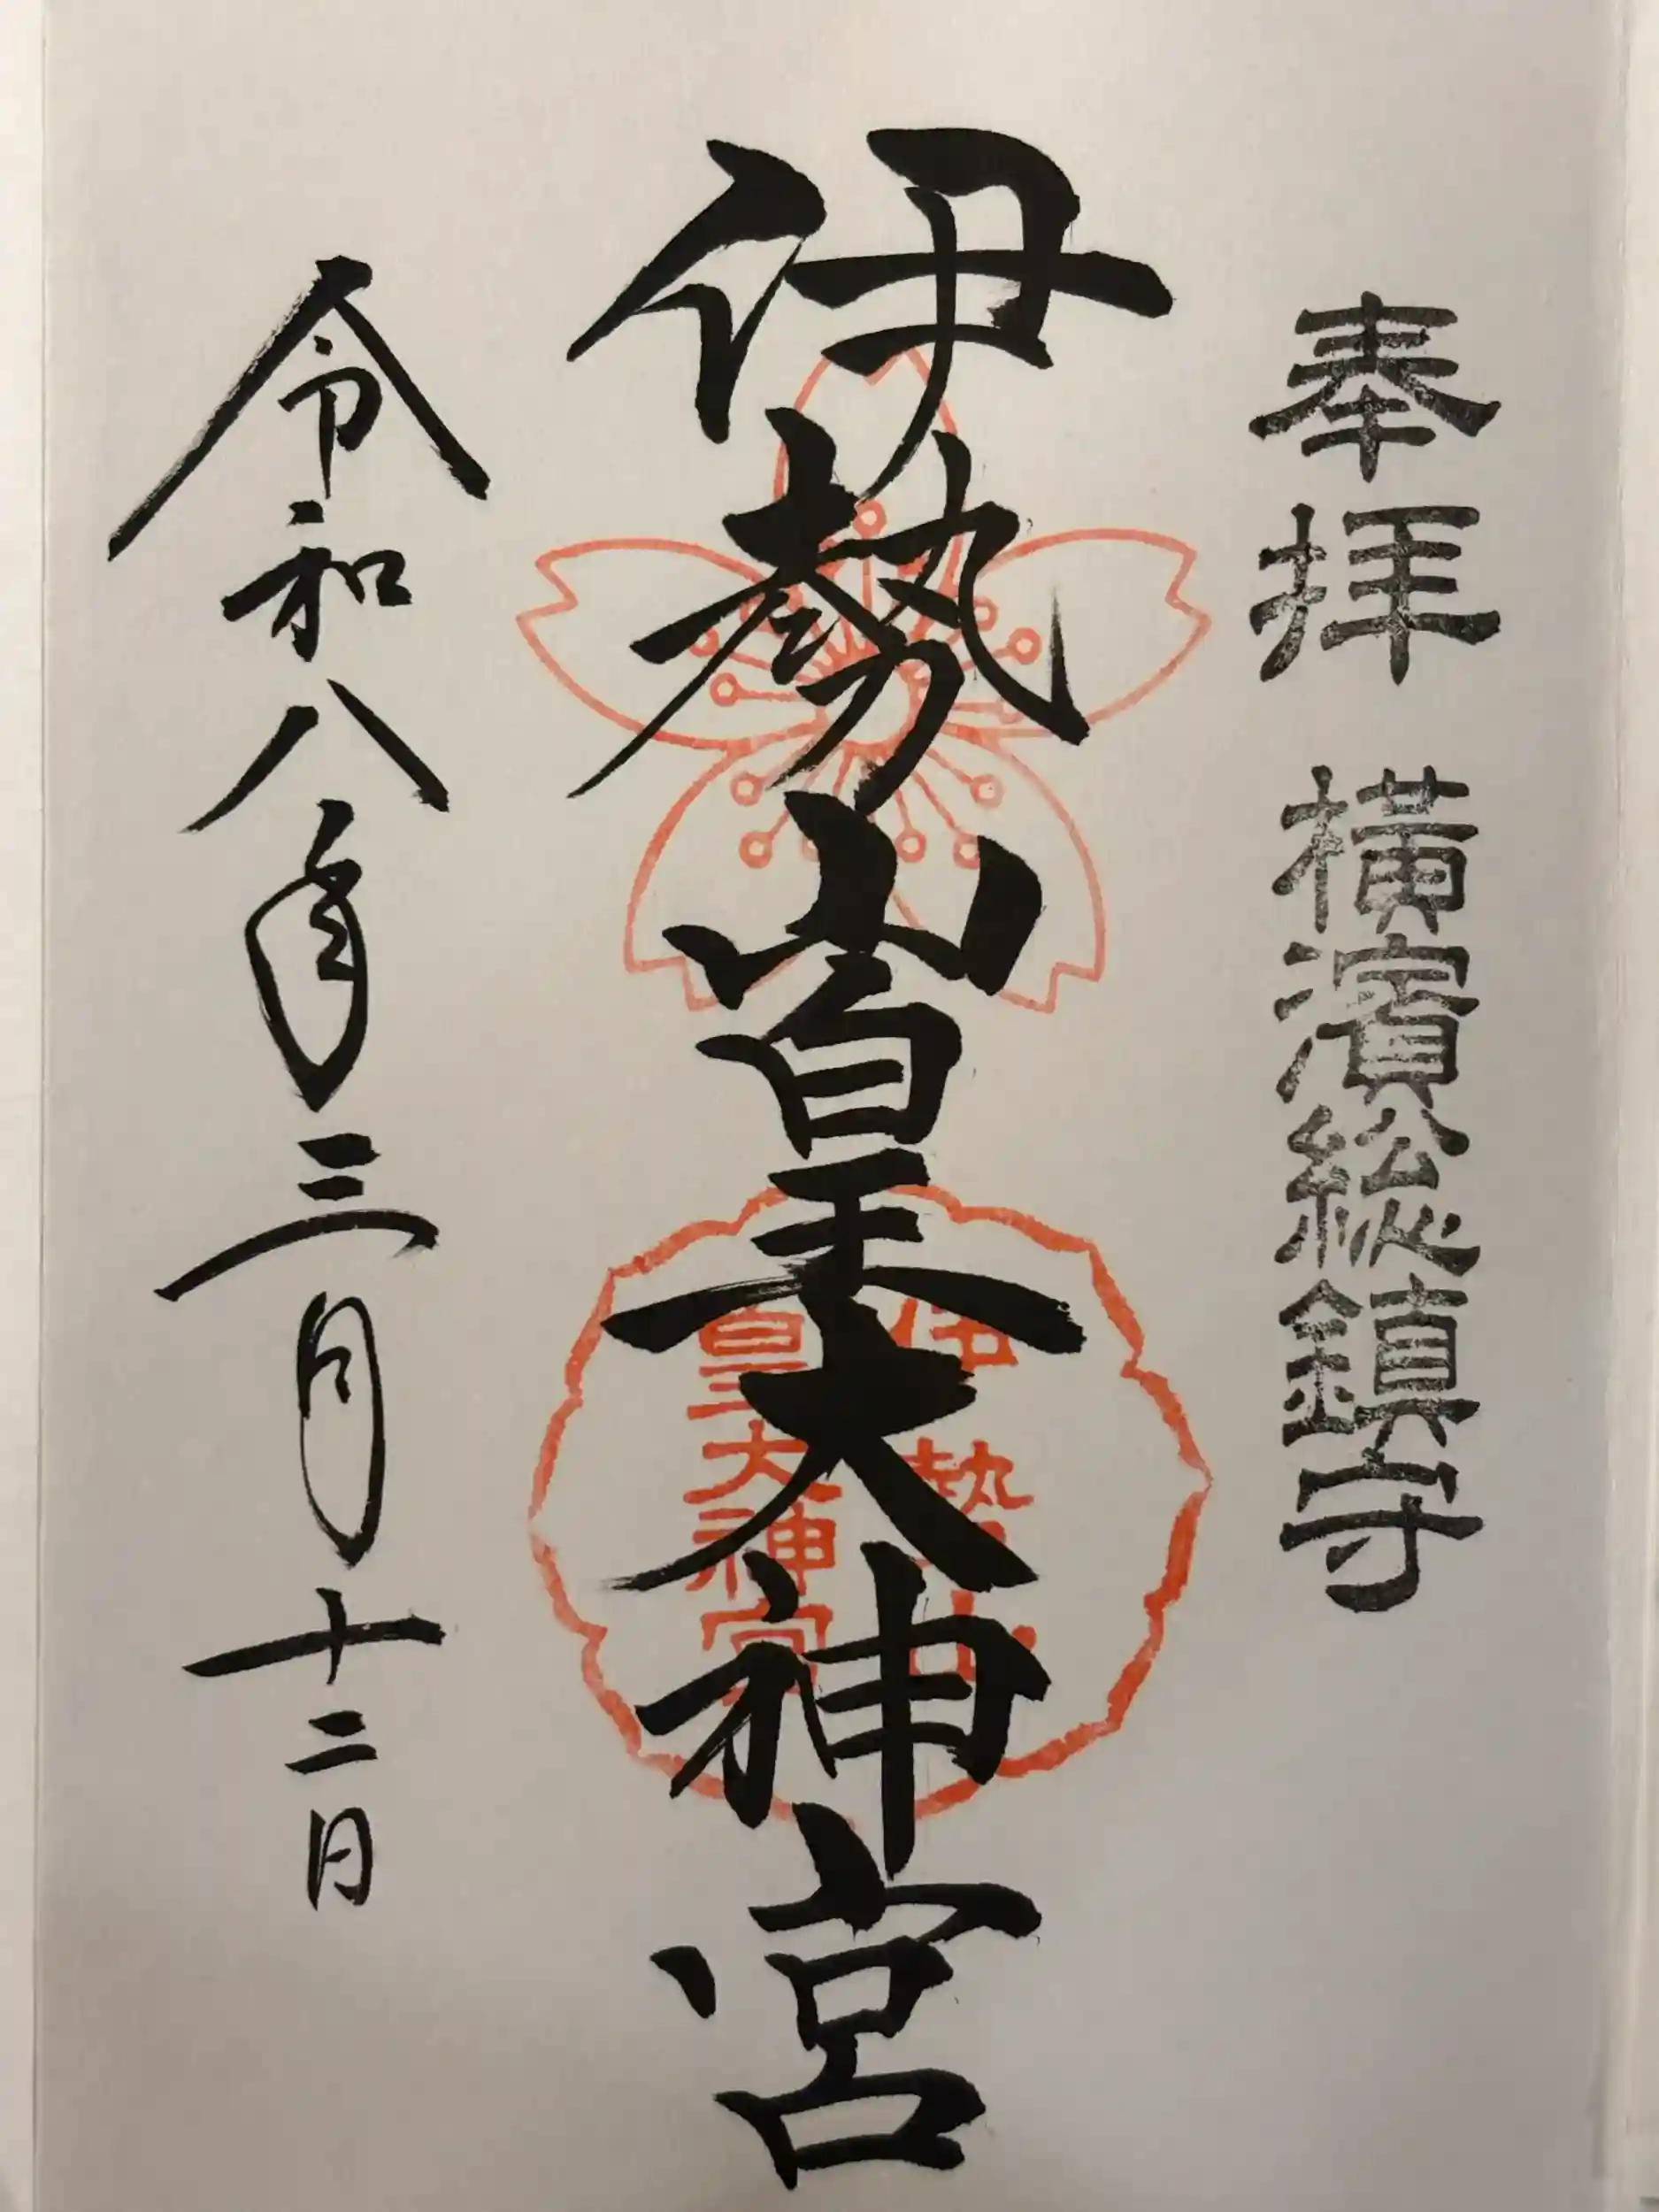 奉拝 横濱総鎮守
伊勢山皇大神宮
伊勢山
皇大神宮
令和八年三月十二日